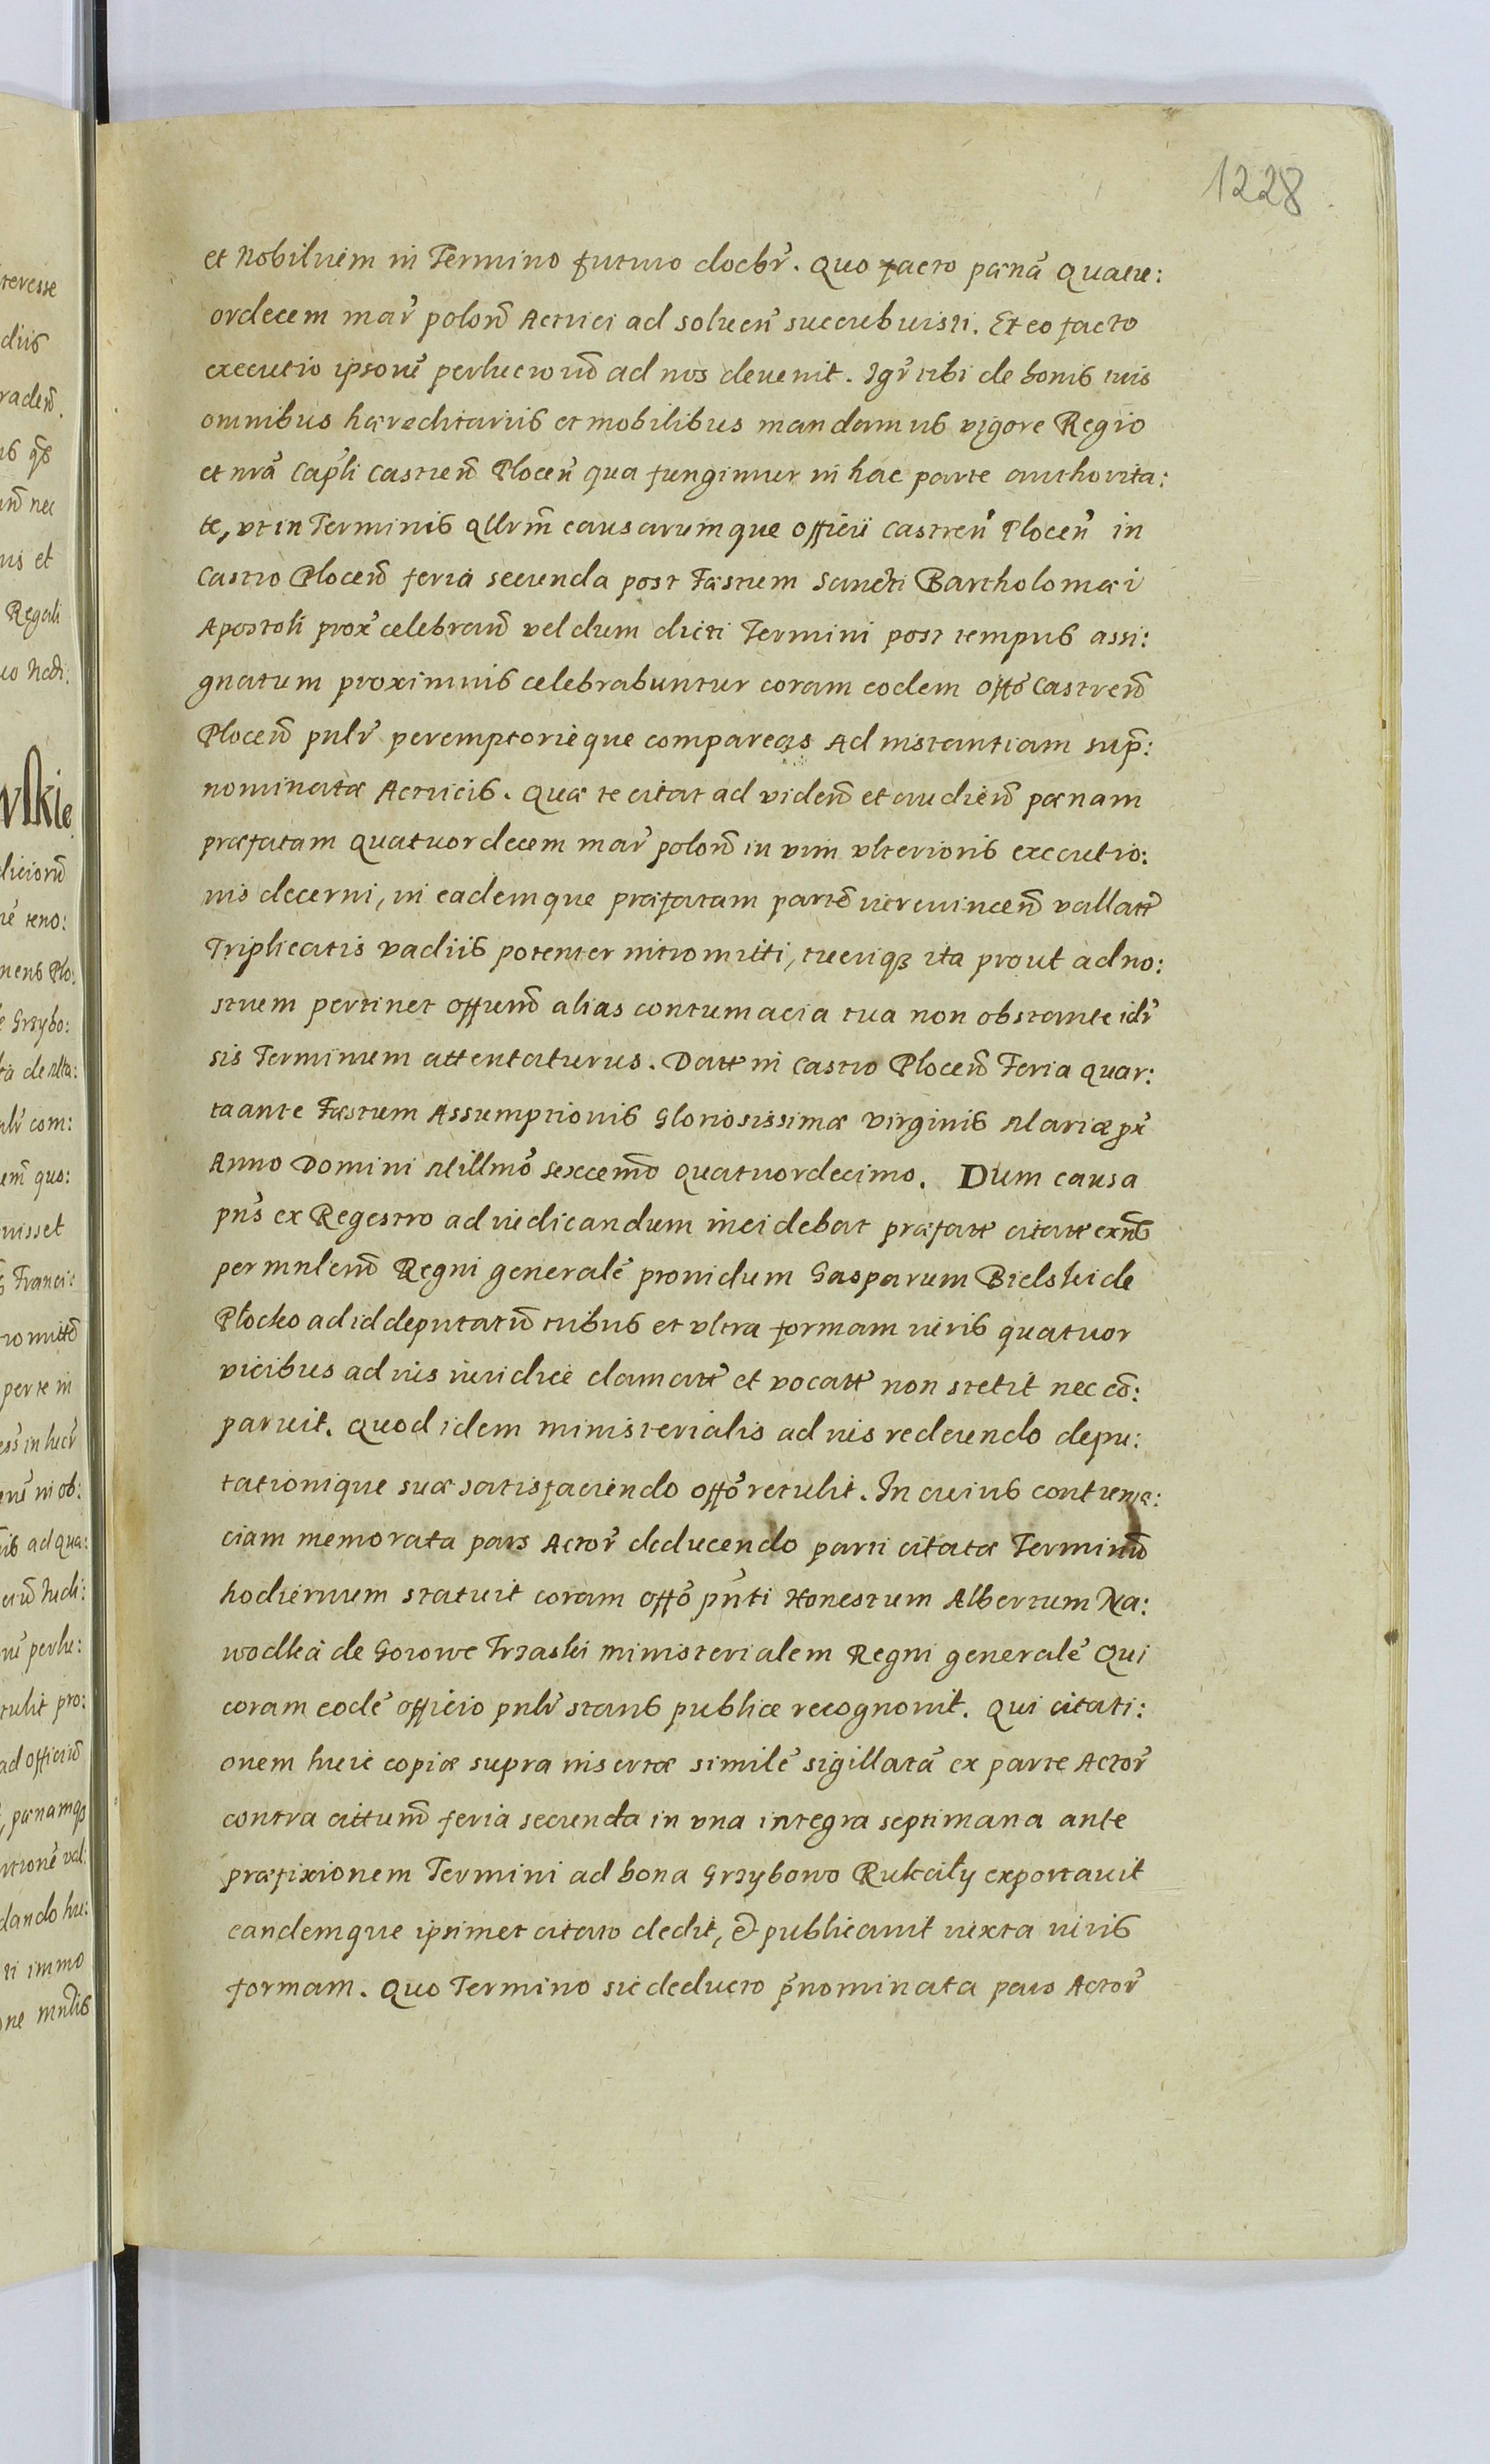 1228
teresse
diis
nec
us et
Regali
wskie
diciorū
teno:
nens Plo:
Grzybo:
com:
quo:
uisset
Franci:
per te in
ad qua:
perlu:
tulit pro:
ad officiū
pænamq3
dando hu:
ti immo
et nobilium in Termino futuro docbr̃. Quo facto pænã Quatu:
ordecem mar̃ polon̄ Actrici ad soluen̄ succubuisti. Et eo facto
executio ipsorũ perlucrorũ ad nos deuenit. Igr̃ tibi de bonis tuis
omnibus hæreditariis et mobilibus mandamus vigore Regio
et nrã Cap̃li Castren̄ Plocen̄ qua fungimur in hac parte authorita:
te, vt in Terminis Qllrm̃ causarumque officii Castren̄ Plocen̄ in
Castro Plocen̄ feria secunda post Fæstum Sancti Bartholomæi
Apostoli prox̃ celebran̄ vel dum dicti Termini post tempus assi:
gnatum proximius celebrabuntur coram eodem offõ Castren̄
Plocen̄ pnlr̃ peremptorièque compareas Ad instantiam sup̃:
nominatæ Actricis. Quæ te citat ad viden̄ et audien̄ pænam
præfatam quatuordecem mar̃ polon̄ in vim vlterioris executio:
nis decerni, in eademque præfatam partẽ iure uincen̄ vallatt̃
Triplicatis vadiis potenter intromitti, tueriq3 ita prout ad no:
strum pertinet offium̃ alias contumacia tua non obstante idr̃
sis Terminum attentaturus. Datt̃ in Castro Plocen̄ Feria quar:
ta ante Fæstum Assumptionis Gloriosissimæ Virginis Mariæ px̃
Anno Domini Millmõ sexcemõ quatuordecimo. Dum causa
pñs ex Regestro ad iudicandum incidebat præfatt̃ citatt̃ exñs
per mnlem̃ Regni generalẽ prouidum Gasparum Bielski de
Płocko ad id deputatũ tribus et vltra formam iuris quatuor
vicibus ad ius iuridicè clamatt̃ et vocatt̃ non stetit nec cõ:
paruit. Quod idem ministerialis ad ius redeundo depu:
tationique suæ satisfaciendo offõ retulit. In cuius contuma:
ciam memorata pars Actor̃ deducendo parti citatæ Terminũ
hodiernum statuit coram offõ pñti Honestum Albertum Na:
wodka de Gorowe Trzaski ministerialem Regni generalẽ Qui
coram eodẽ officio pnlr̃ stans publicæ recognouit. Qui citati:
onem huic copiæ supra insertæ similẽ sigillatã ex parte Actor̃
contra cittum̃ feria secunda in vna integra septimana ante
præfixionem Termini ad bona Grzybowo Rukały exportauit
eandemque ipsimet citato dedit, & publicauit iuxta iuris
formam. Quo Termino sic deducto p̃nominata pars Actor̃